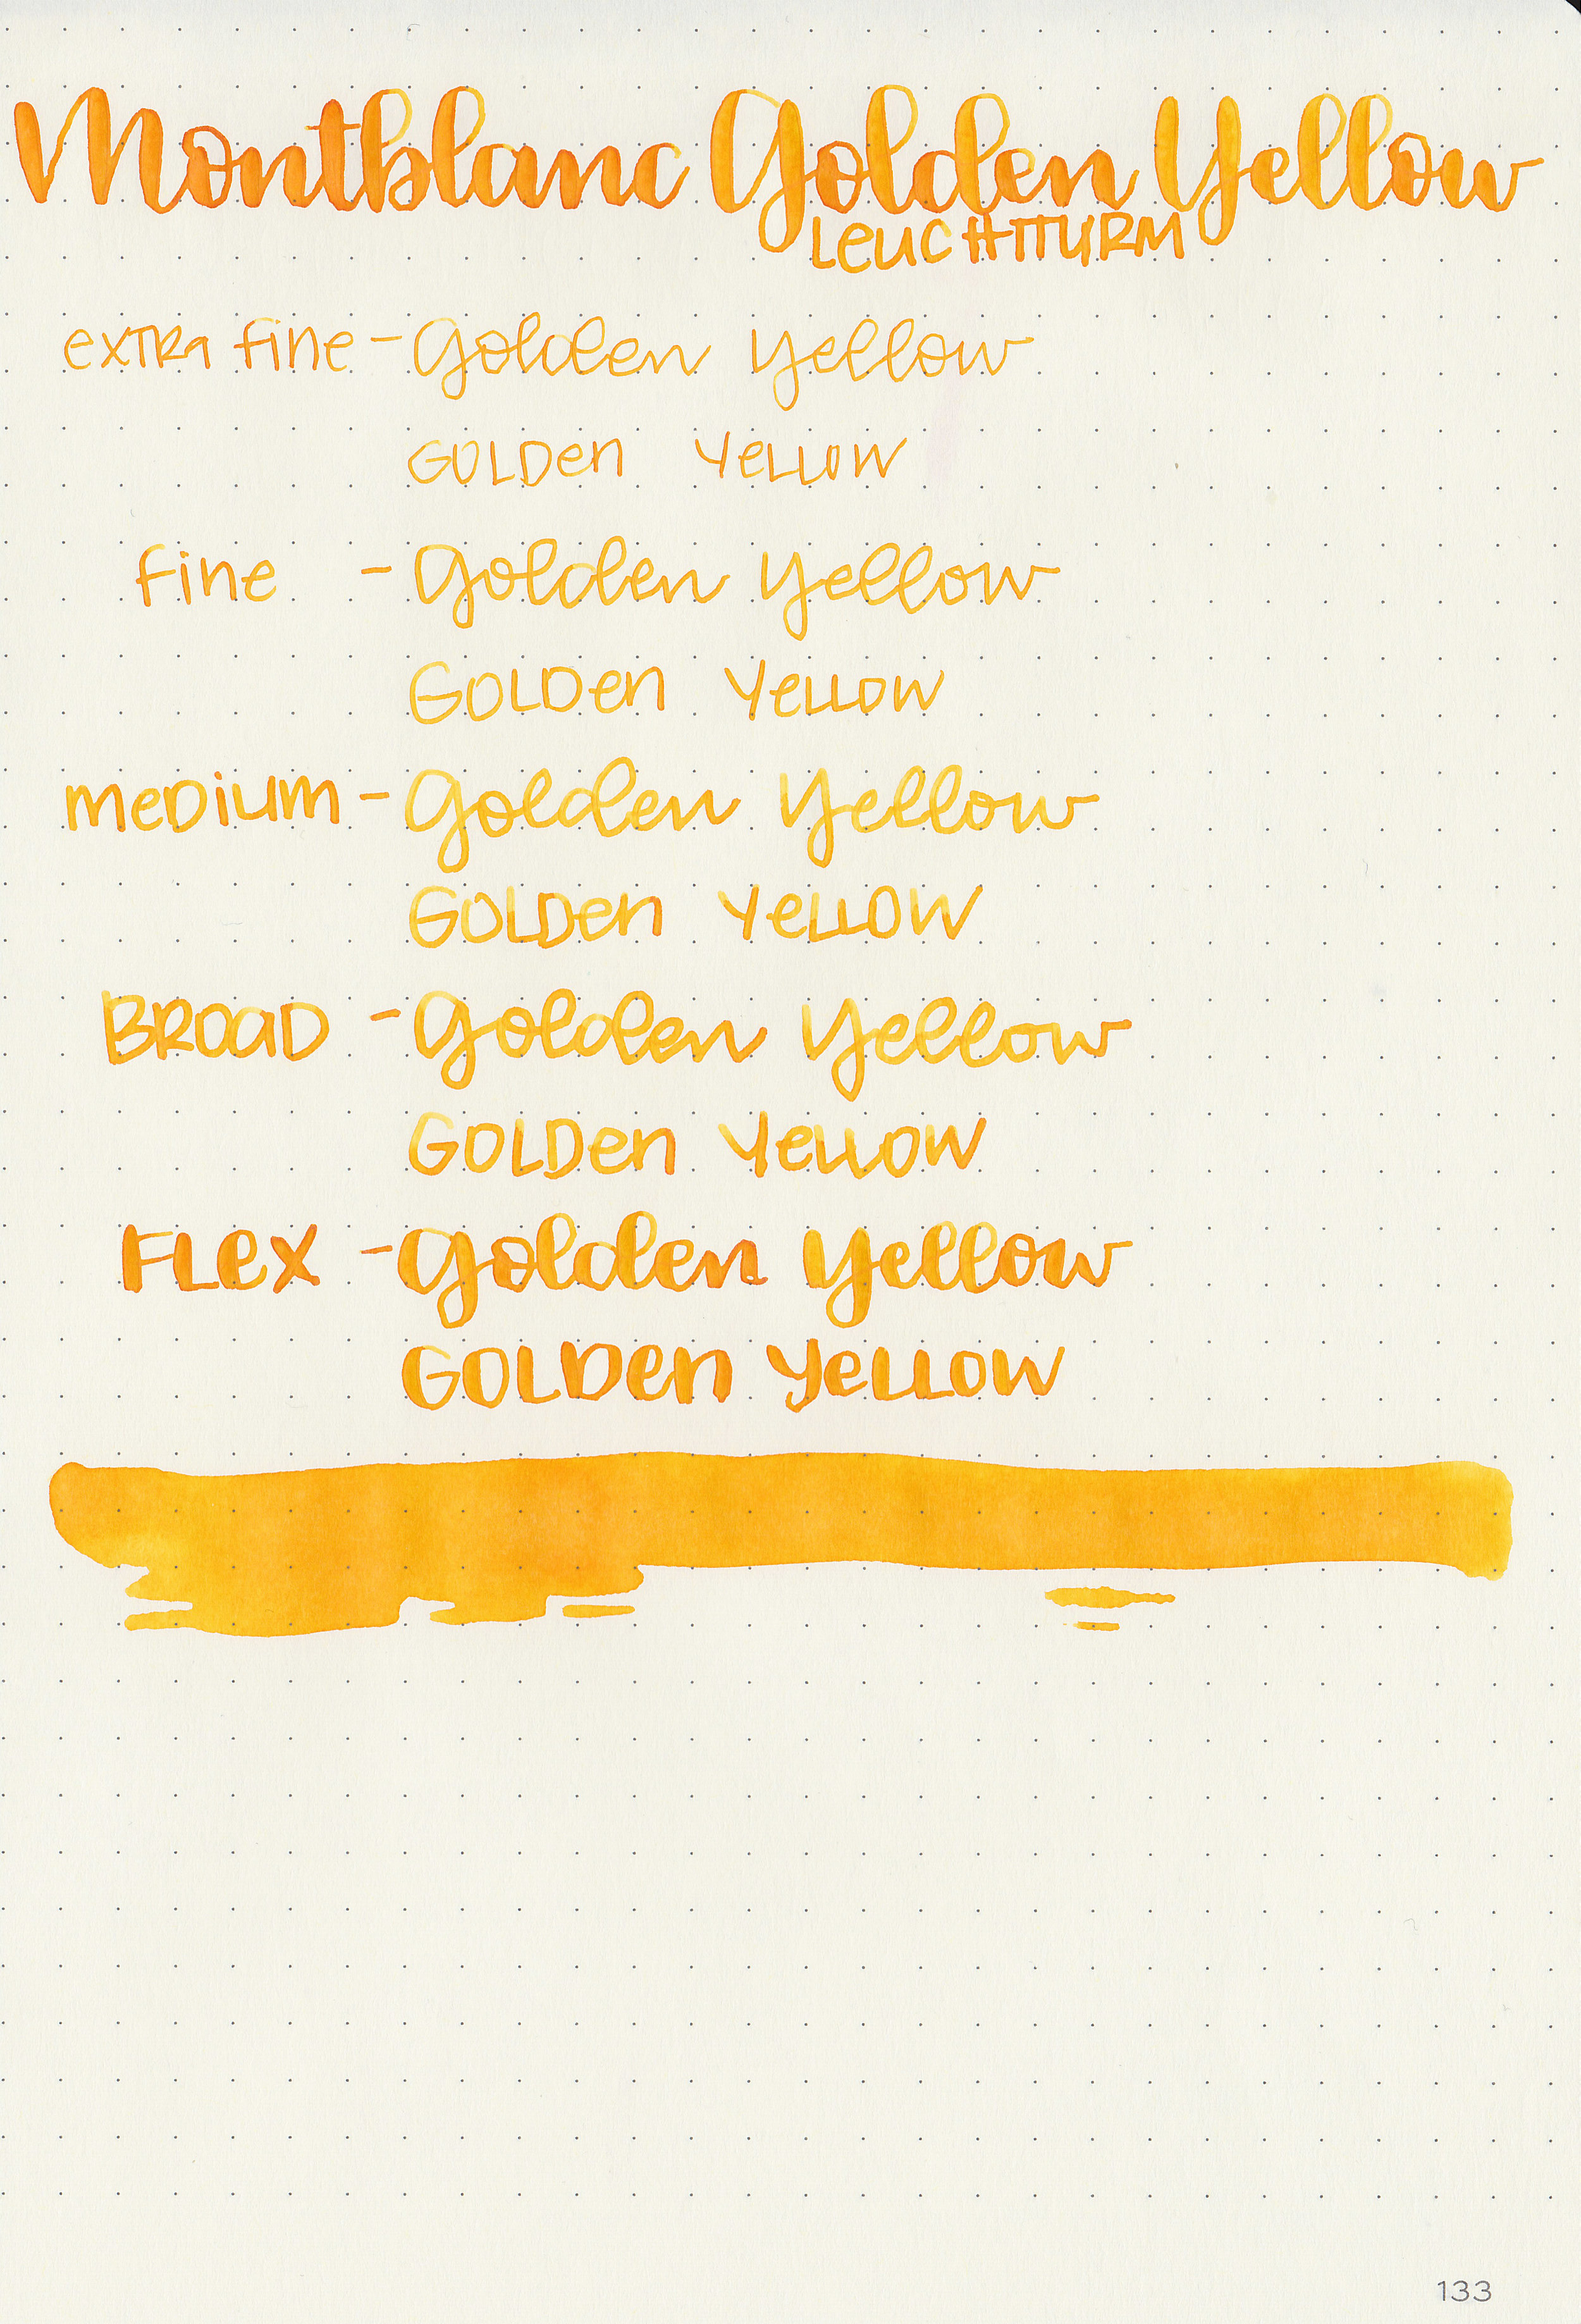 Montblanc Golden Yellow
LEUCHTTURM
extra fine - Golden Yellow
GOLDen YeLLOW
fine - Golden Yellow
GOLDen YeLLOW
meDium - Golden Yellow
GOLDen YeLLOW
BROaD - Golden Yellow
GOLDen YeLLOW
FLex - Golden Yellow
GOLDen YeLLOW
133